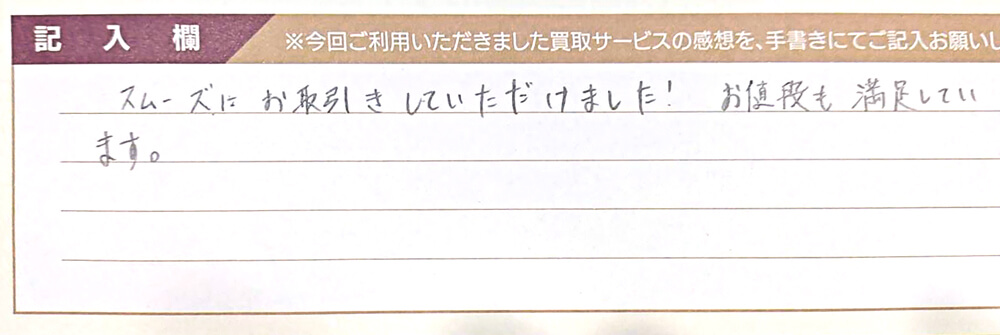 記入欄
※今回ご利用いただきました買取サービスの感想を、手書きにてご記入お願いし
スムーズにお取引きしていただけました! お値段も満足してい
ます。